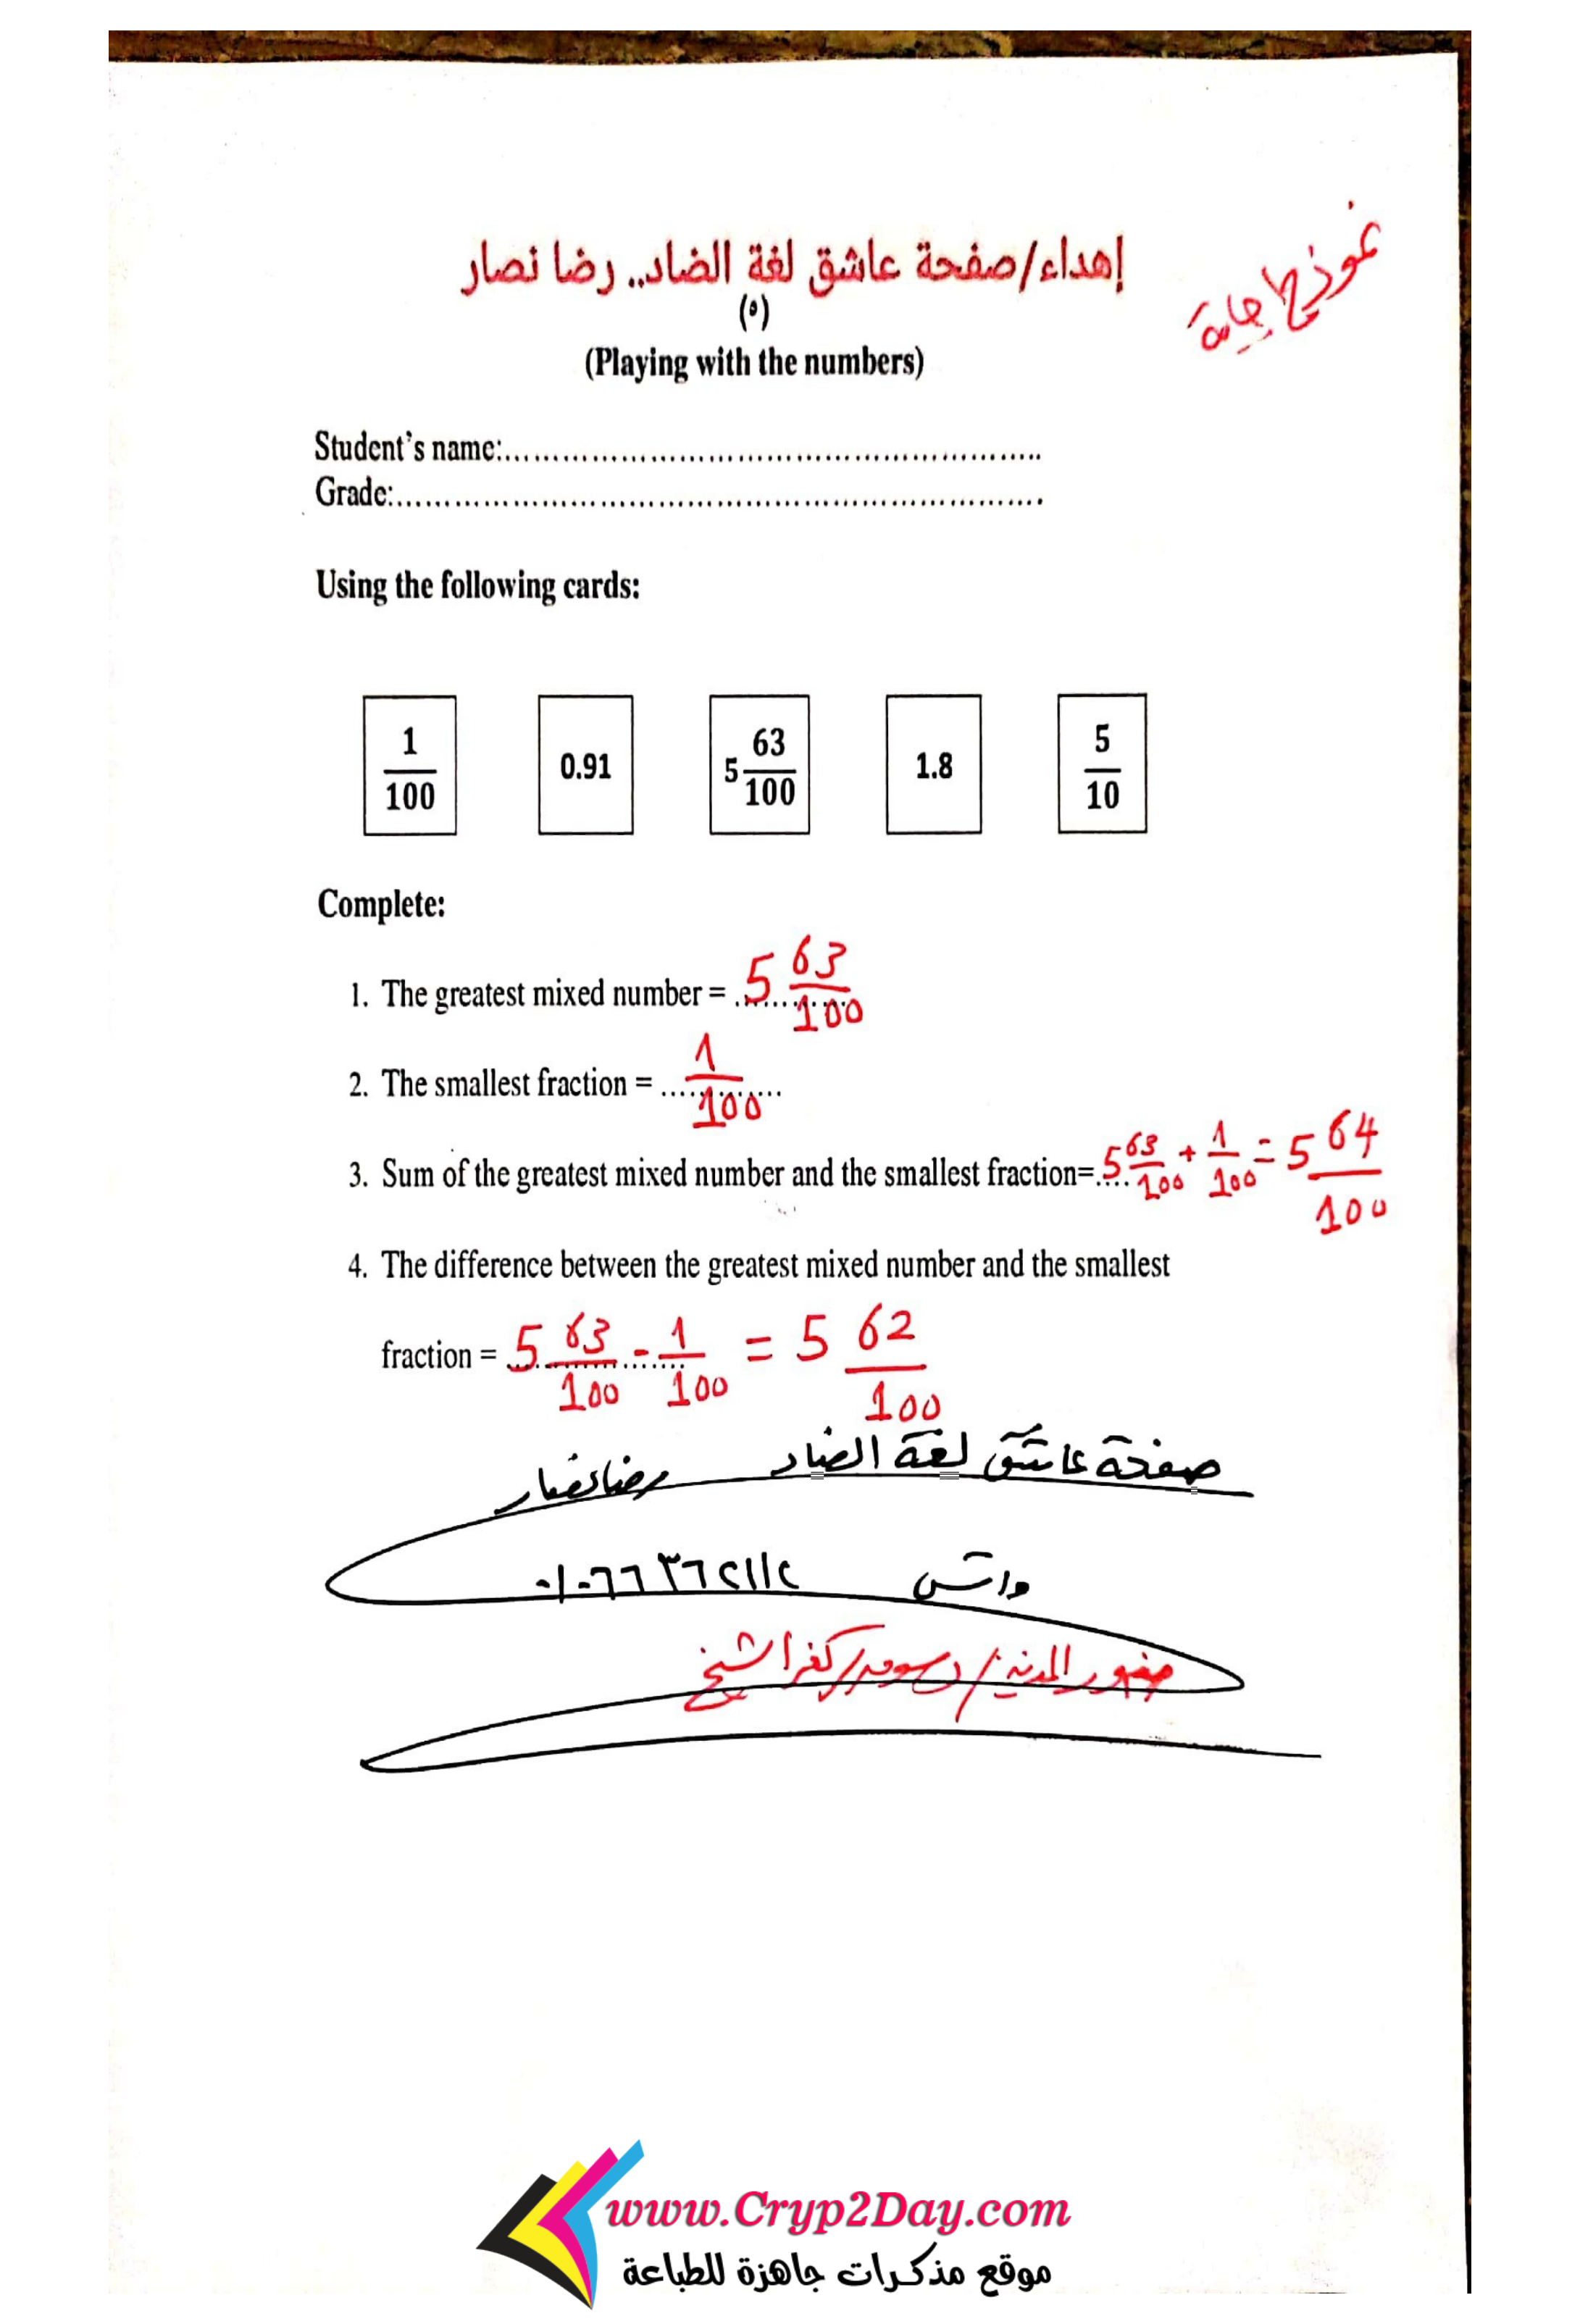 إهداء/صفحة عاشق لغة الضاد.. رضا نصار
نموذج إجابة
(٥)
(Playing with the numbers)
Student's name:..........................................................
Grade:......................................................................
Using the following cards:
1/100 0.91 5 63/100 1.8 5/10
Complete:
1. The greatest mixed number = 5 63/100
2. The smallest fraction = 1/100
3. Sum of the greatest mixed number and the smallest fraction= 5 63/100 + 1/100 = 5 64/100
4. The difference between the greatest mixed number and the smallest
fraction = 5 63/100 - 1/100 = 5 62/100
صفحة عاشق لغة الضاد رضا نصار
واتس ٠١٠٦٦٣٦٢١١٢
المدينة / دسوق / كفر الشيخ
www.Cryp2Day.com
موقع مذكرات جاهزة للطباعة